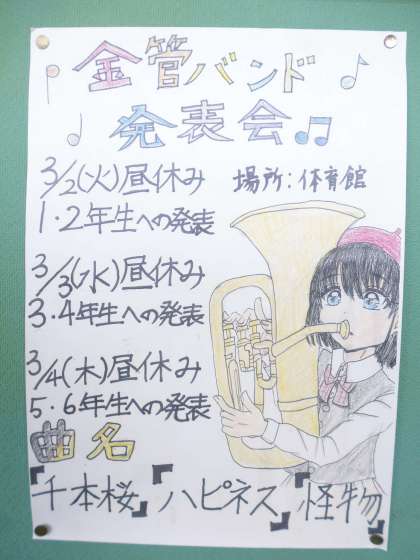 金管バンド
発表会
3/2(火)昼休み
場所:体育館
1・2年生への発表
3/3(水)昼休み
3・4年生への発表
3/4(木)昼休み
5・6年生への発表
曲名
『千本桜』『ハピネス』『怪物』